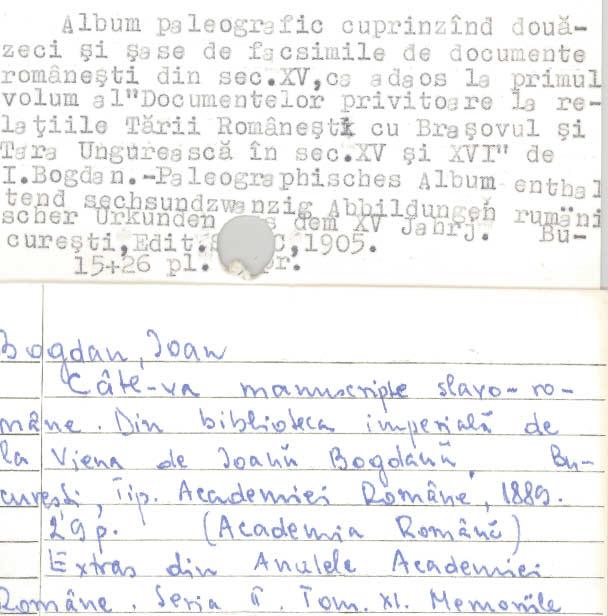 Album paleografic cuprinzînd două-
zeci şi şase de facsimile de documente
româneşti din sec.XV,ca adaos la primul
volum al"Documentelor privitoare la re-
laţiile Tării Româneşti cu Braşovul şi
Tara Ungurească în sec.XV şi XVI" de
I.Bogdan.-Paleographisches Album enthal
tend sechsundzwanzig Abbildungen rumäni
scher Urkunden dem XV Jahrj. Bu-
cureşti,Edit. 1905.
15+26 pl.
Bogdan, Joan
Câte-va manuscripte slavo-ro-
mâne. Din biblioteca imperială de
la Viena de Joanŭ Bogdanŭ, Bu-
cureşti, Tip. Academiei Române, 1889.
29p. (Academia Română)
Extras din Analele Academiei
Române. Seria II. Tom. XI. Memoriile